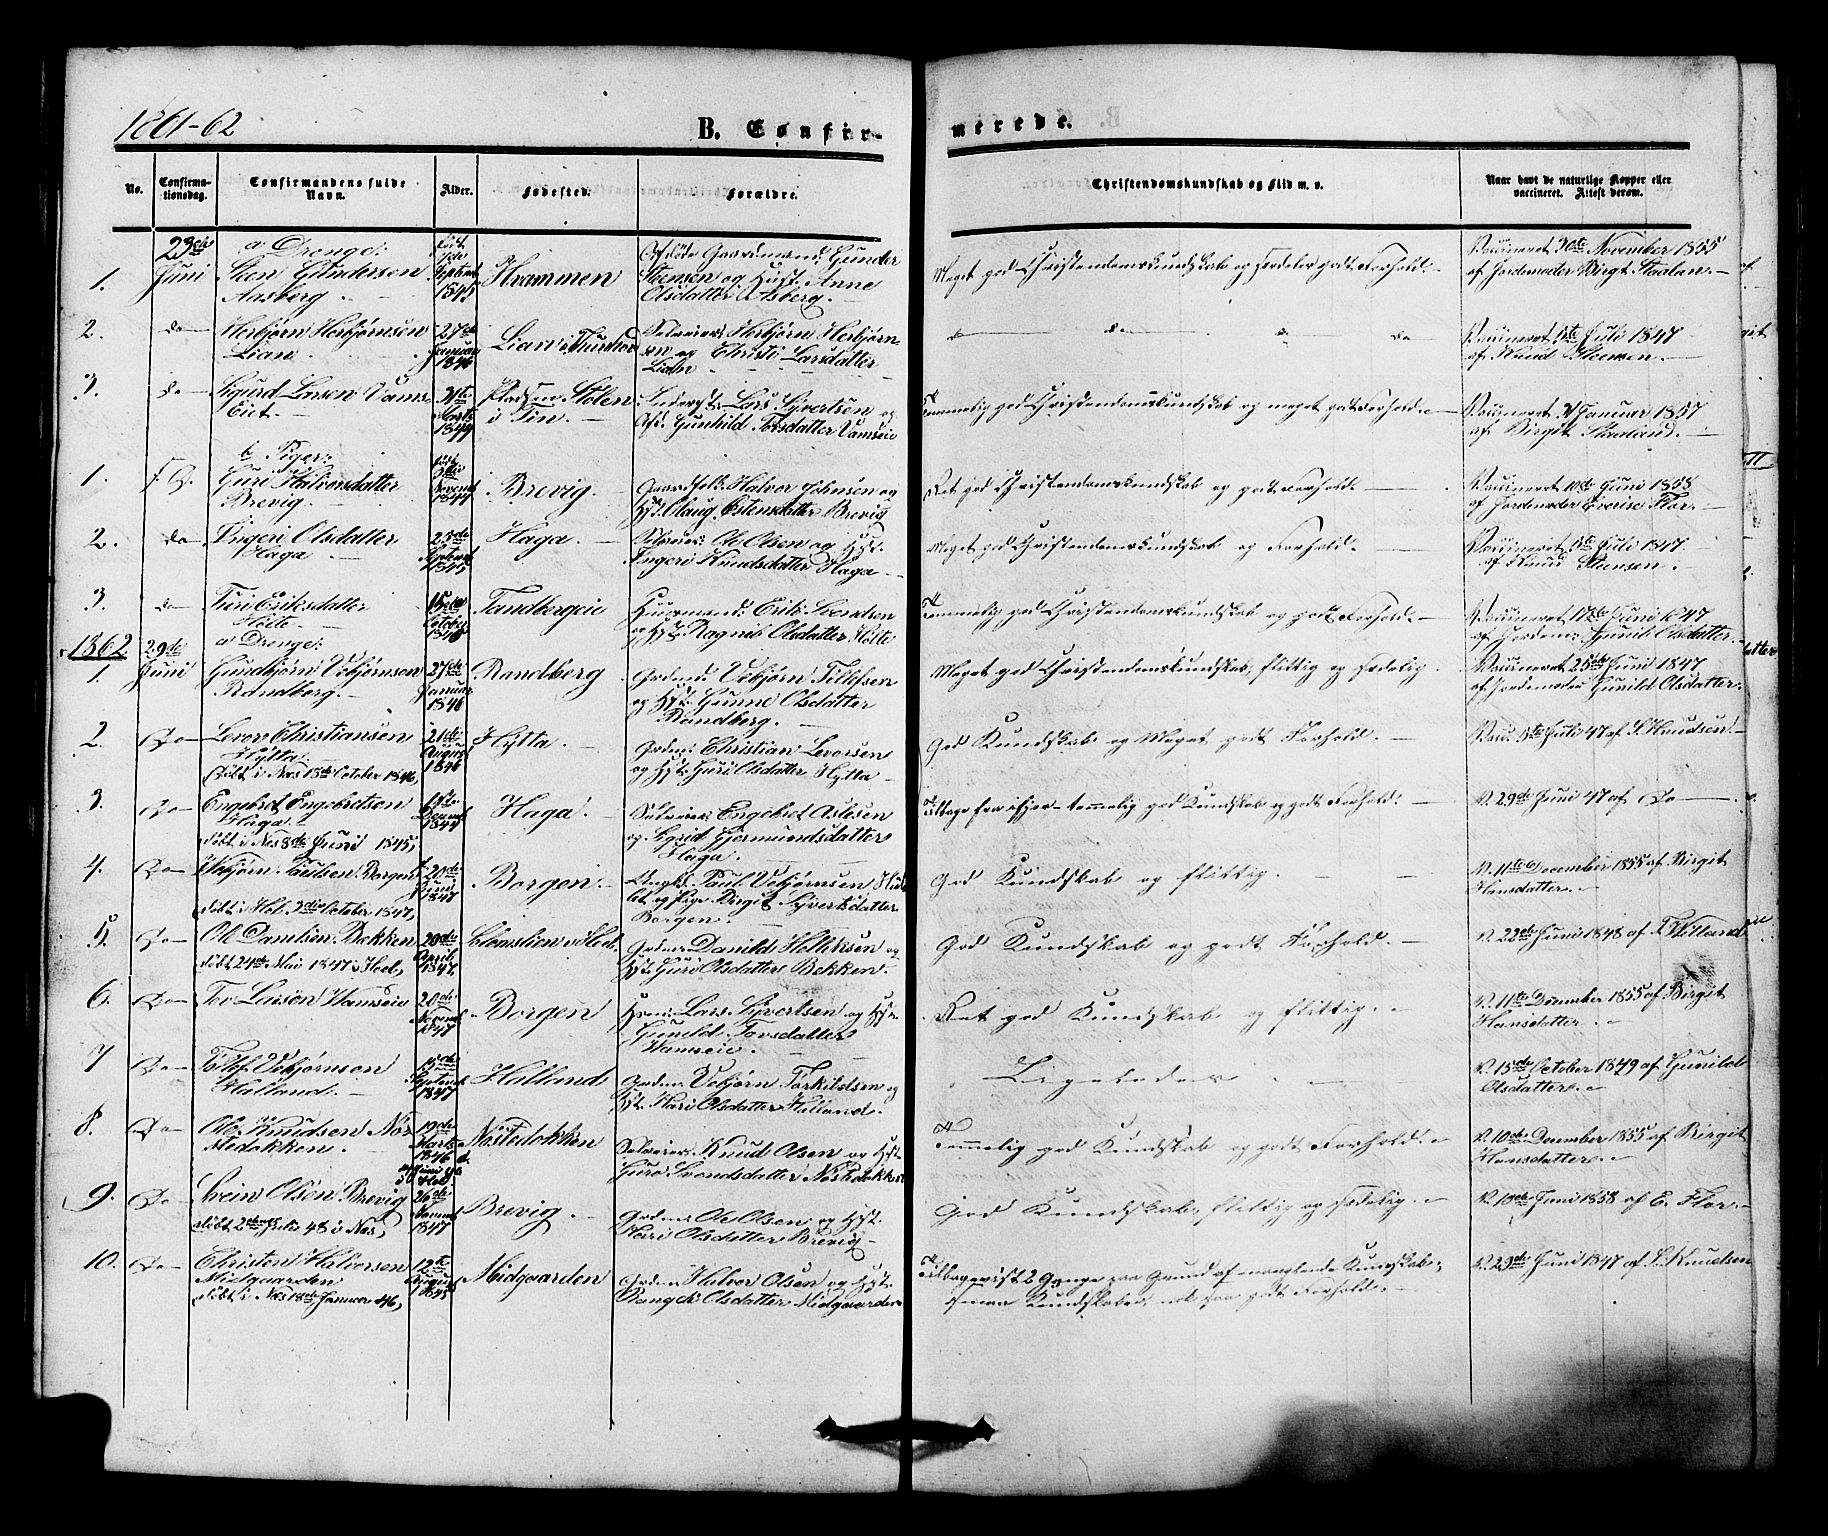 1861-62
B. Confirmerede.
No.
Confirmationsdag.
Confirmandens fulde Navn.
Alder.
Fødested.
Forældre.
Christendomskundskab og Flid m. v.
Naar havt de naturlige Kopper eller vaccineret. Attest derom.
23de Juni
a Drenge:
1. Sten Gundersen Aasberg. Septemb 1845 Hvammen
Afdøde Gaardmand: Gunder Stensen og Hust. Anne Olsdatter Aasberg.
Meget god Christendomskundskab og særdeles godt Forhold.
Vaccineret 30te November 1855 af Jordemoder Birgit Staaland.
2. do Herbjørn Herbjørnsen Lian. 27de Januar 1846
Selveier: Herbjørn Herbjørnsen og Christi Larsdatter Lian
do do
Vaccineret 1ste Juli 1847 af Knud Steensen.
3. do Sigurd Larsen Vamseiet. 31te Marts 1844 Pladsen Stolen i Tin.
Inderst: Lars Syvertsen og Hst. Gunhild Torsdatter Vamseie
Temmelig god Christendomskundskab og meget godt Forhold.
Vaccineret Januar 1857 af Birgit Staaland.
b Piger:
1. Guri Halvorsdatter Brevig. Novemb 1844 Brevig.
Gaardfolk: Halvor Johnsen og Hst. Olaug Østensdatter Brevig
Ret god Christendomskundskab og godt Forhold.
Vaccineret 10de Juni 1858 af Jordemoder Everise Flor.
2. do Ingeri Olsdatter Haga. 25de Septemb 1845 Haga.
Selveier: Ole Olsen og Hst. Ingeri Knudsdatter Haga.
Meget god Christendomskundskab og Forhold.
Vaccineret 1ste Juli 1847 af Knud Steensen.
3. do Turi Eriksdatter Holte. 15de October 1846 Tandbergeie
Huusmand: Erik Svendsen og Hst. Ragnil Olsdatter Holte
Temmelig god Christendomskundskab og godt Forhold.
Vaccineret 17de Juni 1847 af Jordem: Gunild Olsdatter.
1862 29de Juni
a Drenge:
1. Gundbjørn Vebjørnson Randberg. 27de Januar 1846 Randberg
Gardmd: Vebjørn Tollefsen og Hst. Gunne Olsdatter Randberg.
Meget god Christendomskundskab, flittig og sædelig.
Vaccineret 25de Juni 1847 af Jordemoder Gunild Olsdatter.
2. Do Levor Christiansen Hytta. 21de August 1846 Hytta.
døbt i Næs 18de October 1846,
Gardm: Christian Levorsen og Hst. Guri Olsdatter Hytta
God Kundskab og Meget godt Forhold.
Vacc. 1ste Juli 47 af S. Knudsen.
3. Do Engebret Engebretson Haga. Decemb 1844 Haga.
døbt i Næs 8de Juni 1845,
Selveier: Engebret Aslesen og Sigrid Gjermundsdatter Haga.
Tilbage fra ifjor. temmelig god Kundskab og godt Forhold.
V. 29de Juni 47 af Do
4. Do Vebjørn Paulsen Borgen 20de Juni 1847 Borgen.
døbt i Hol 3die October 1847,
Ungk. Paul Vebjørnsen og Pige Birgit Syvertsdatter Borgen.
God Kundskab og flittig.
V. 11te December 1855 af Birgit Hansdatter.
5. Do Ole Danielsen Bækken 20de April 1847
døbt 24de Mai 1847 i Hol,
Gardm: Daniel Helleksen og Hst. Guro Olsdatter Bekken.
God Kundskab og godt Forhold.
V. 22de Juni 1848 af
6. Do Tov Larson Vamseie 20de Novemb 1847 Borgen
Hsmd: Lars Syvertsen og Hst. Gunild Torsdatter Vamseie.
Ret god Kundskab og flittig.
V. 11te December 1855 af Birgit Hansdatter
7 Do Tollef Vebjørnson Halland. 15de Septemb 1847 Halland
Gardm: Vebjørn Torkildsen og Hst. Kari Olsdatter Halland.
Ligeledes
V. 15de October 1849 af Gunild Olsdatter.
8. Do Ole Knudsen Næstedokken. 19de Marts 1846 Næstedokken
Selveier: Knud Olsen og Hst Guro Svendsdatter Næstedokken
Temmelig god Kundskab og godt Forhold.
V. 10de December 1855 af Birgit Hansdatter.
9. Do Svein Olsen Brevig 26de 1847 Brevig.
døbt 2den Juli 48 i Næs,
Gardm: Ole Olsen og Hst. Kari Olsdatter Brevig
God Kundskab, flittig og sædelig.
V. 10de Juni 1858 af E. Flor.
10. Do Christen Halvorsen Midgaarden 12te August 1845 Midgaarden
døbt i Næs 18de Januar 46,
Gardm: Halvor Olsen og Hst. Rangdi Olsdatter Midgaarden
Tilbagevist 2 Gange paa Grund af manglende Kundskab; smaa Kundskaber, men godt Forhold.
V. 29de Juni 1847 af S. Knudsen